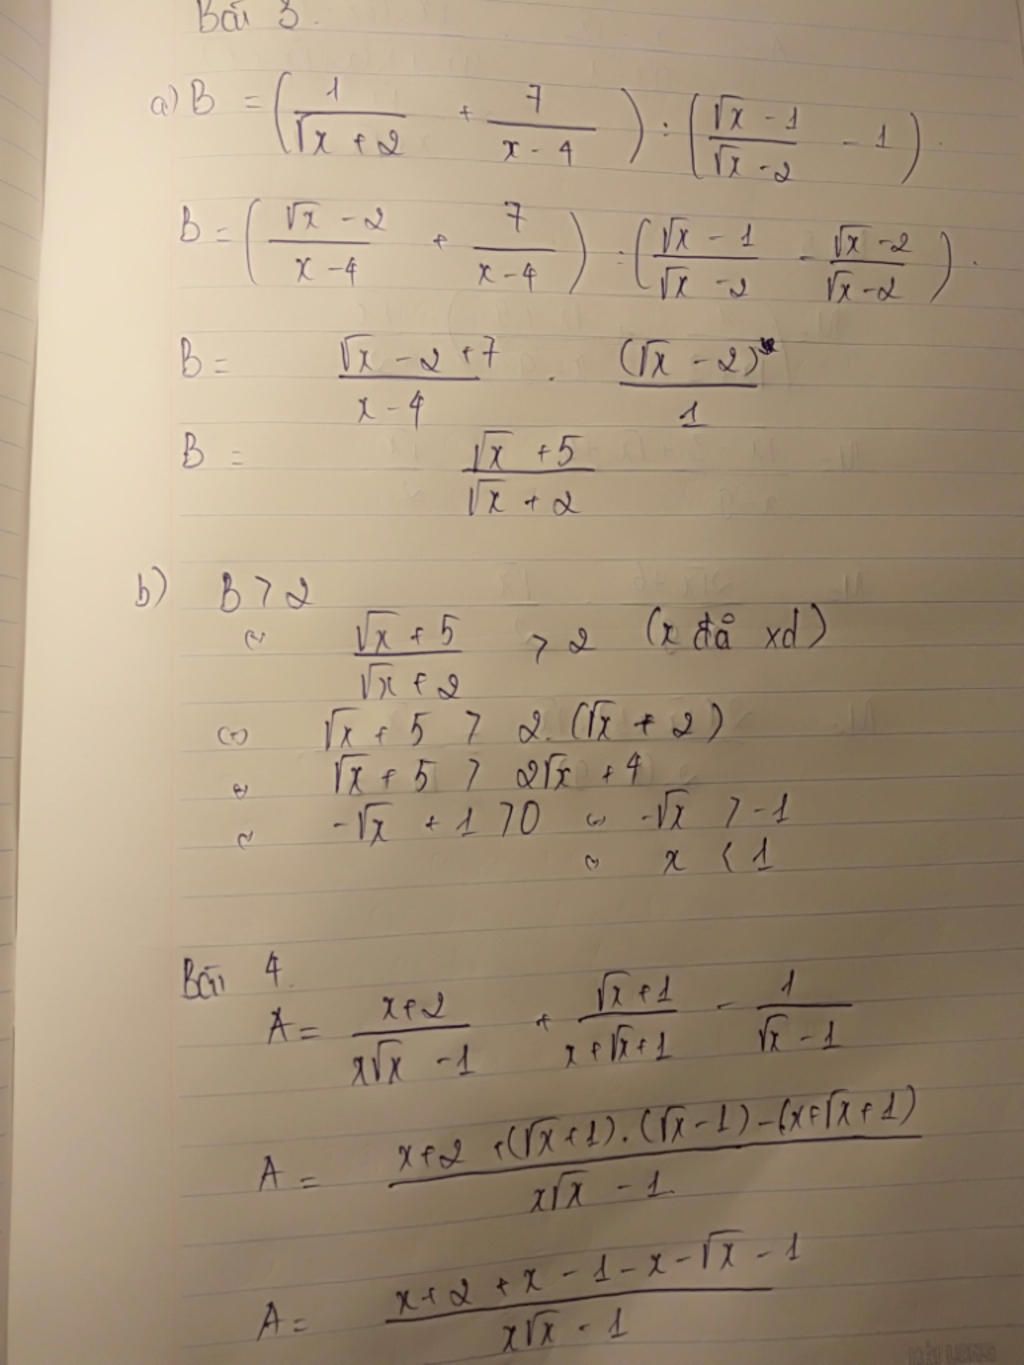 Bài 3.
a) B = (1/(√x + 2) + 7/(x - 4)) : ((√x - 1)/(√x - 2) - 1).
B = ((√x - 2)/(x - 4) + 7/(x - 4)) : ((√x - 1)/(√x - 2) - (√x - 2)/(√x - 2)).
B = (√x - 2 + 7)/(x - 4) . (√x - 2)/1
B = (√x + 5)/(√x + 2)
b) B > 2
⇔ (√x + 5)/(√x + 2) > 2 (x đã xd)
⇔ √x + 5 > 2.(√x + 2)
⇔ √x + 5 > 2√x + 4
⇔ -√x + 1 > 0 ⇔ -√x > -1
⇔ x < 1
Bài 4.
A = (x + 2)/(x√x - 1) + (√x + 1)/(x + √x + 1) - 1/(√x - 1)
A = (x + 2 + (√x + 1).(√x - 1) - (x + √x + 1))/(x√x - 1)
A = (x + 2 + x - 1 - x - √x - 1)/(x√x - 1)